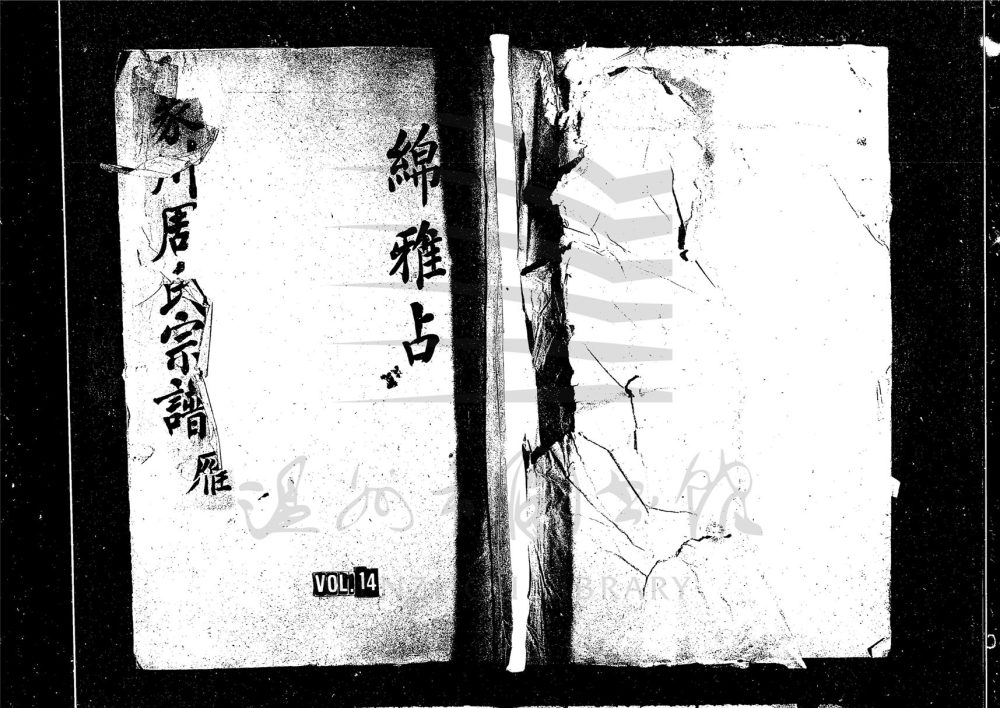 綿雅占
豢川周氏宗譜
雁
VOL. 14
温州市图书馆
WENZHOU LIBRARY